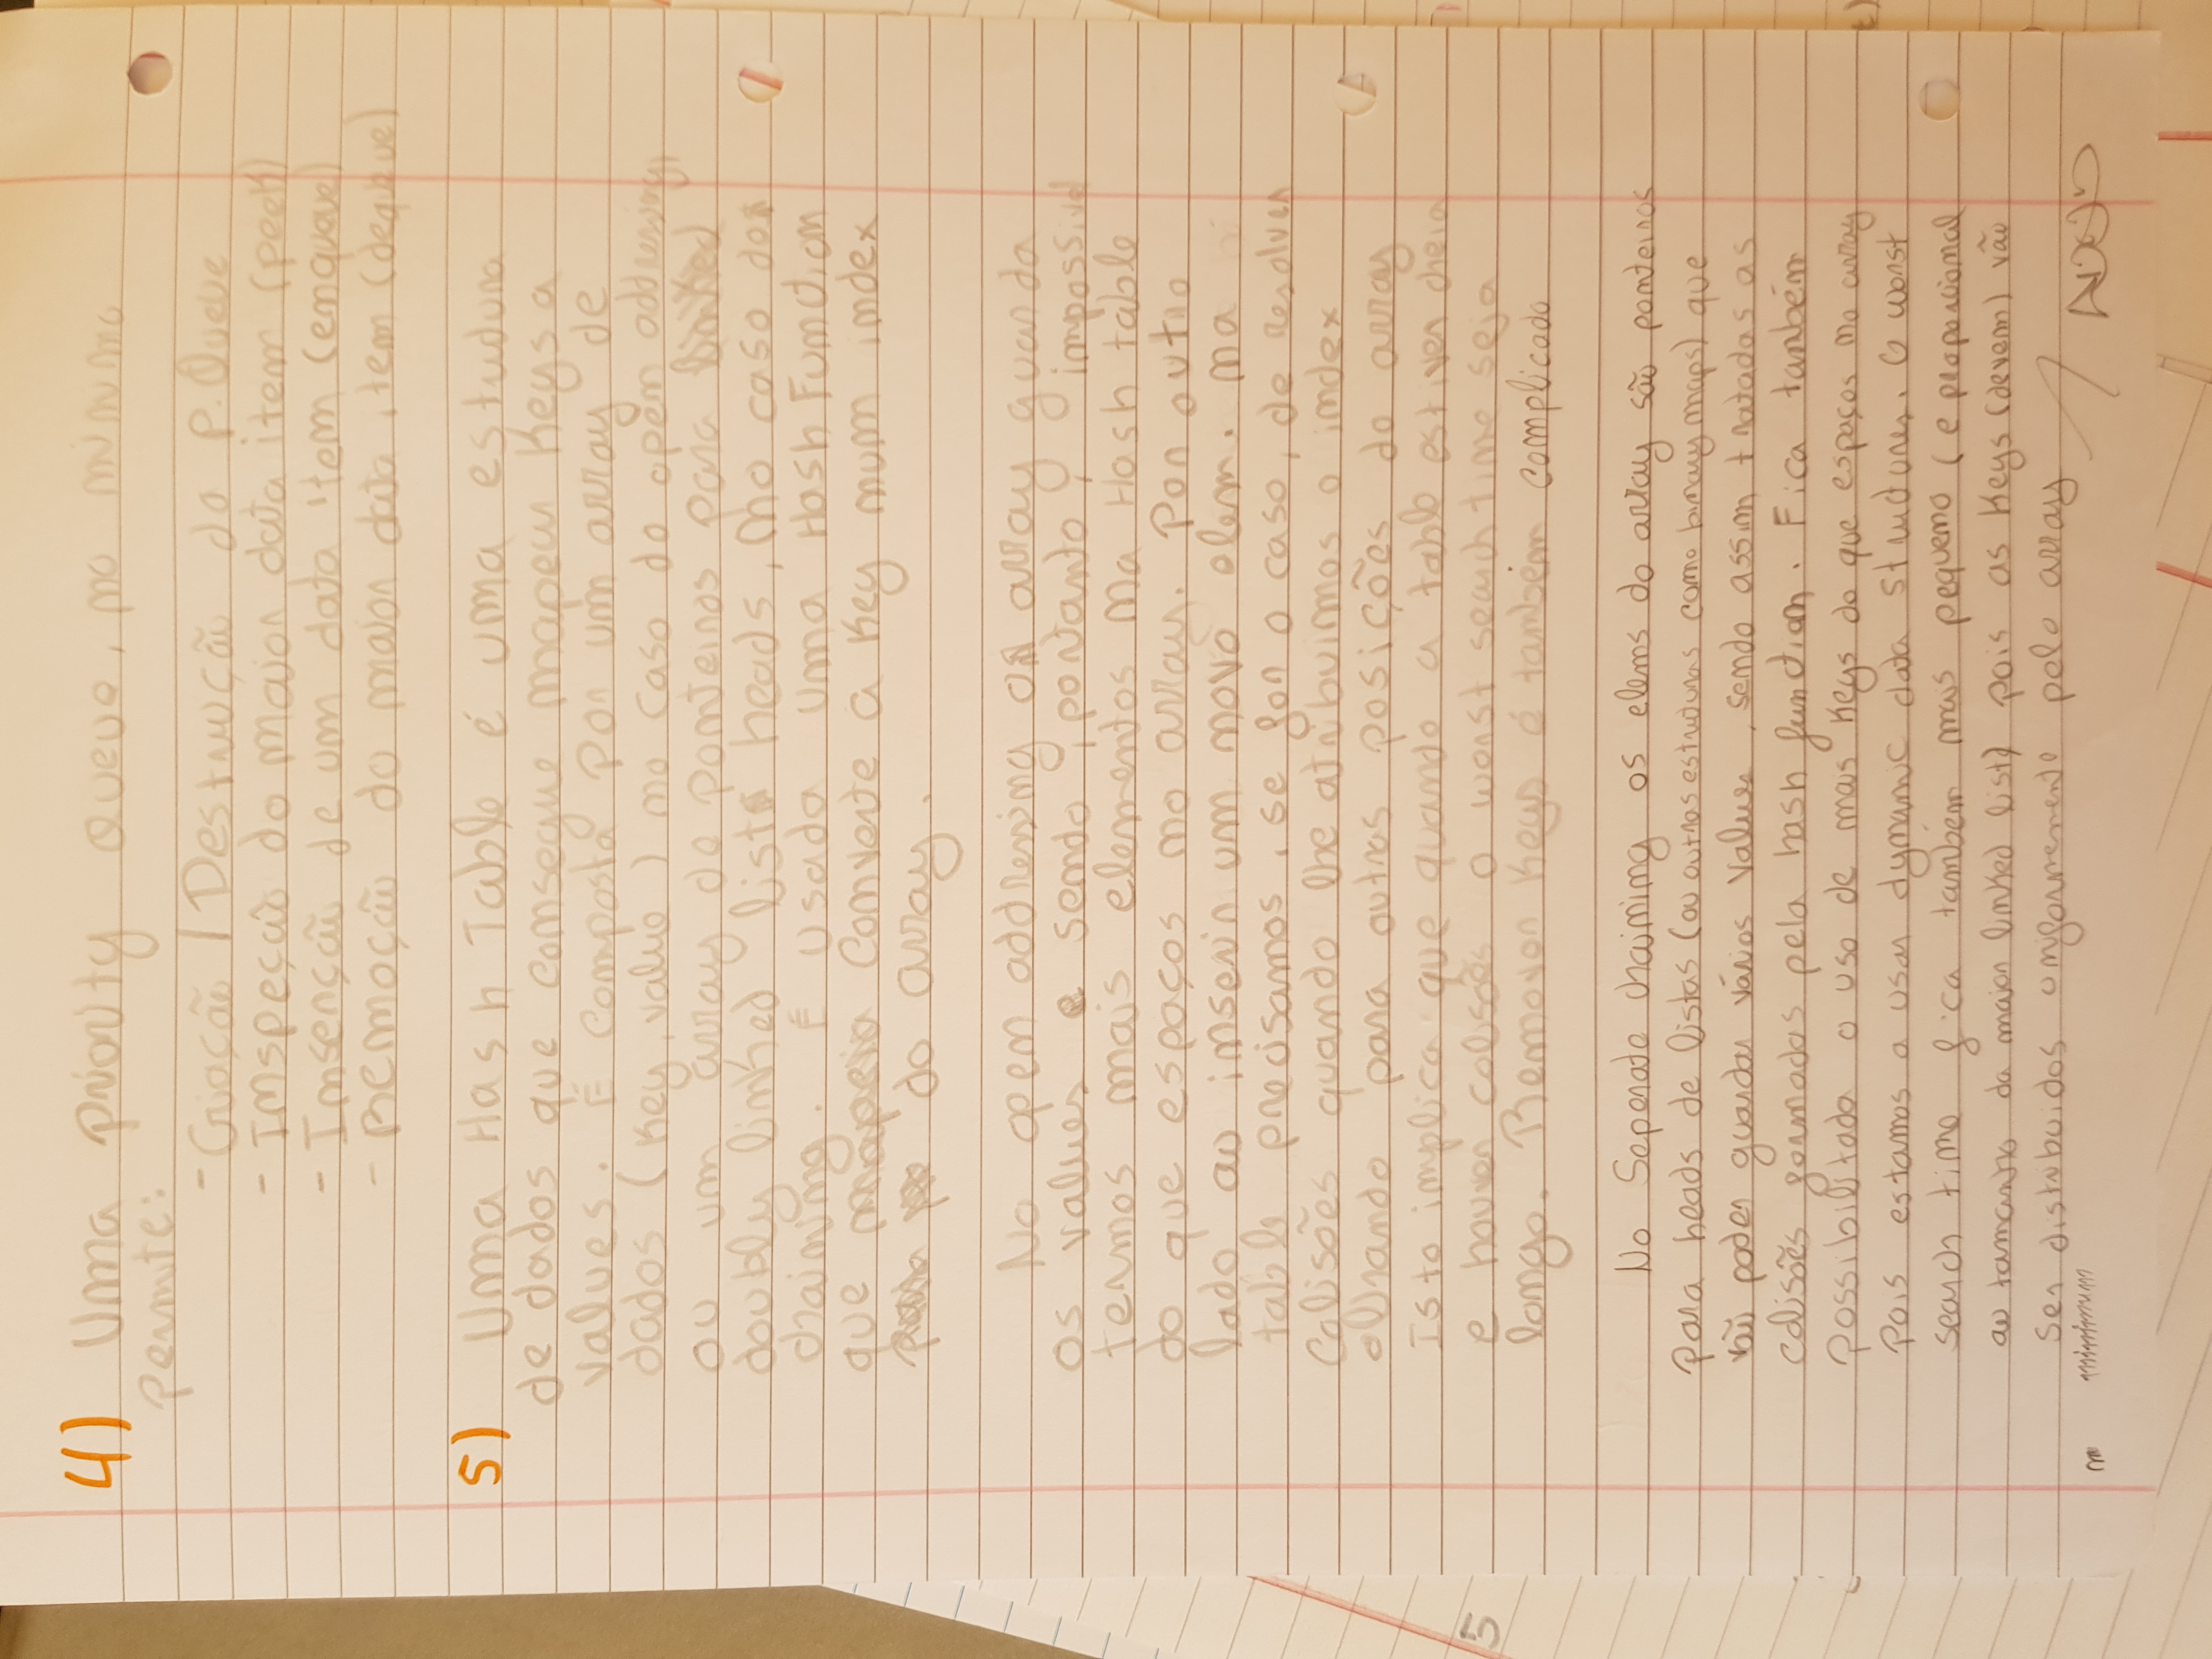 4) Uma Priority Queue, no minimo
permite:
- Criação / Destruição da P. Queue
- Inspeção do maior data item (peek)
- Inserção de um data item (enqueue)
- Remoção do maior data item (dequeue)
5) Uma Hash Table é uma estrutura
de dados que consegue mapear Keys a
values. É composta por um array de
dados (Key, value) no caso do open addressing,
ou um array de ponteiros para
doubly linked list heads, no caso do
chaining. É usada uma Hash Function
que converte a Key num index
do array.
No open addressing o array guarda
os values sendo, portanto, impossivel
termos mais elementos na Hash table
do que espaços no array. Por outro
lado ao inserir um novo elem. na
table precisamos, se for o caso, de resolver
colisões quando lhe atribuimos o index
olhando para outras posições do array
Isto implica que quando a table estiver cheia
e houver colisões o worst search time seja
longo. Remover Keys é também complicado
No Seperate chaining os elems do array são ponteiros
para heads de listas (ou outras estruturas como binary maps) que
vão poder guardar vários values, sendo assim tratadas as
colisões formadas pela hash function. Fica também
possibilitado o uso de mais Keys do que espaços no array
pois estamos a usar dynamic data structures. O worst
search time fica também mais pequeno (e proporcional
ao tamanho da maior linked list) pois as Keys (devem) vão
ser distribuidos uniformemente pelo array
m minimum
5